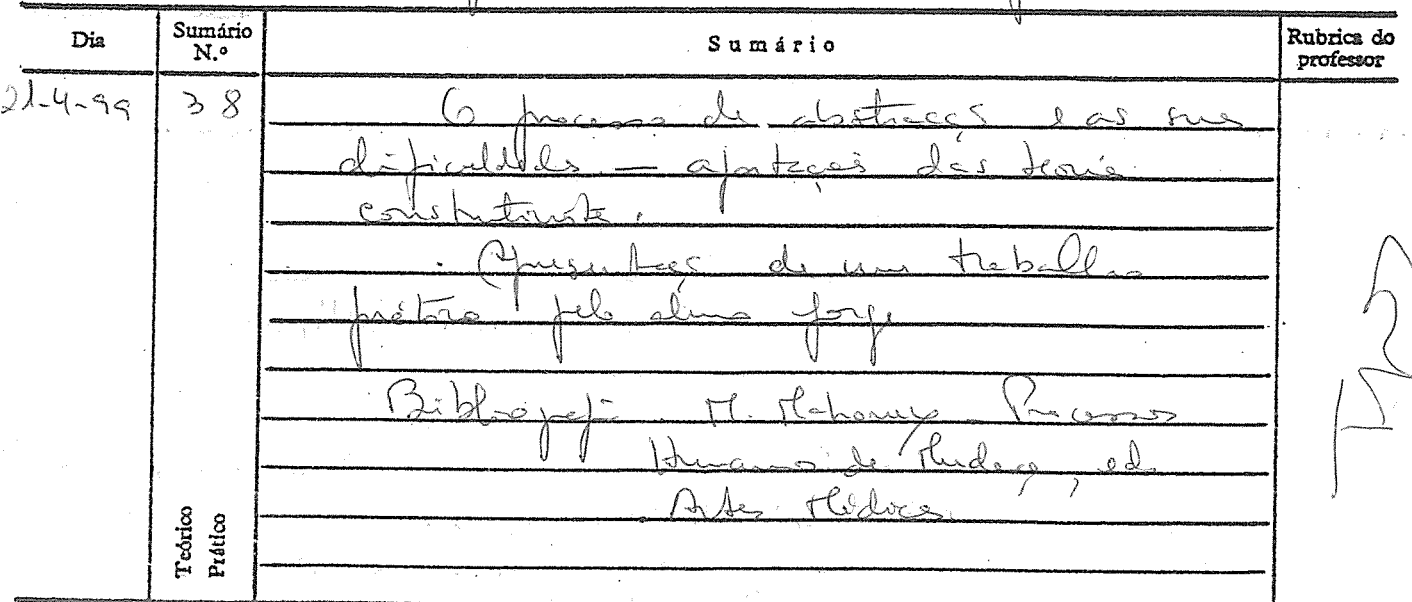 Dia Sumário N.º Sumário Rubrica do professor
21-4-99 38 O processo de abstracção e as suas
dificuldades — aportações das teorias
construtivistas.
. Apresentação de um trabalho
prático pelo aluno Jorge
Bibliografia. M. Mahoney Processos
Humanos de Mudança, ed.
Artes Médicas
Teórico
Prático